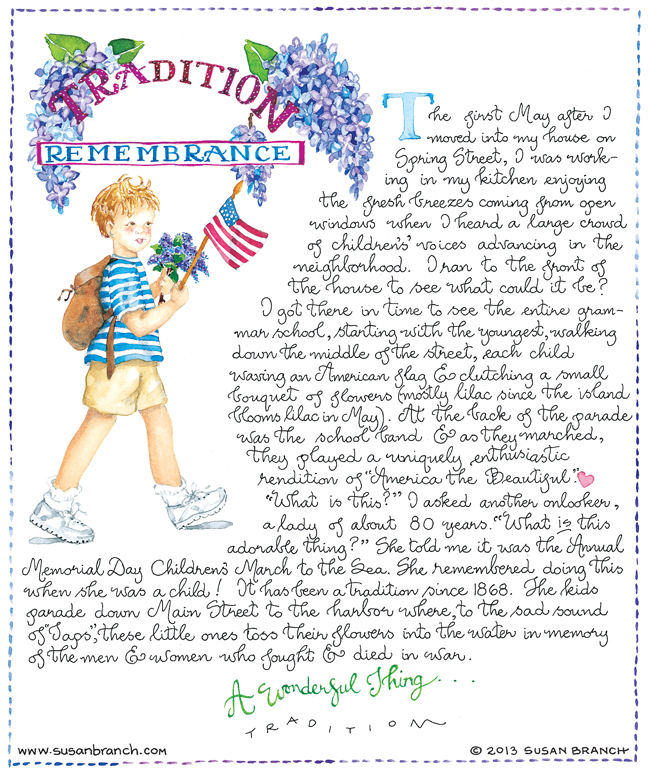 TRADITION
REMEMBRANCE
The first May after I
moved into my house on
Spring Street, I was work-
ing in my kitchen enjoying
the fresh breezes coming from open
windows when I heard a large crowd
of children's' voices advancing in the
neighborhood. I ran to the front of
the house to see what could it be?
I got there in time to see the entire gram-
mar school, starting with the youngest, walking
down the middle of the street, each child
waving an American flag & clutching a small
bouquet of flowers (mostly lilac since the island
blooms lilac in May). At the back of the parade
was the school band & as they marched,
they played a uniquely enthusiastic
rendition of "America the Beautiful."
"What is this?" I asked another onlooker,
a lady of about 80 years. "What is this
adorable thing?" She told me it was the Annual
Memorial Day Children's March to the Sea. She remembered doing this
when she was a child! It has been a tradition since 1868. The kids
parade down Main Street to the harbor where, to the sad sound
of "Taps", these little ones toss their flowers into the water in memory
of the men & women who fought & died in war.
A Wonderful Thing...
TRADITION
www.susanbranch.com
© 2013 SUSAN BRANCH